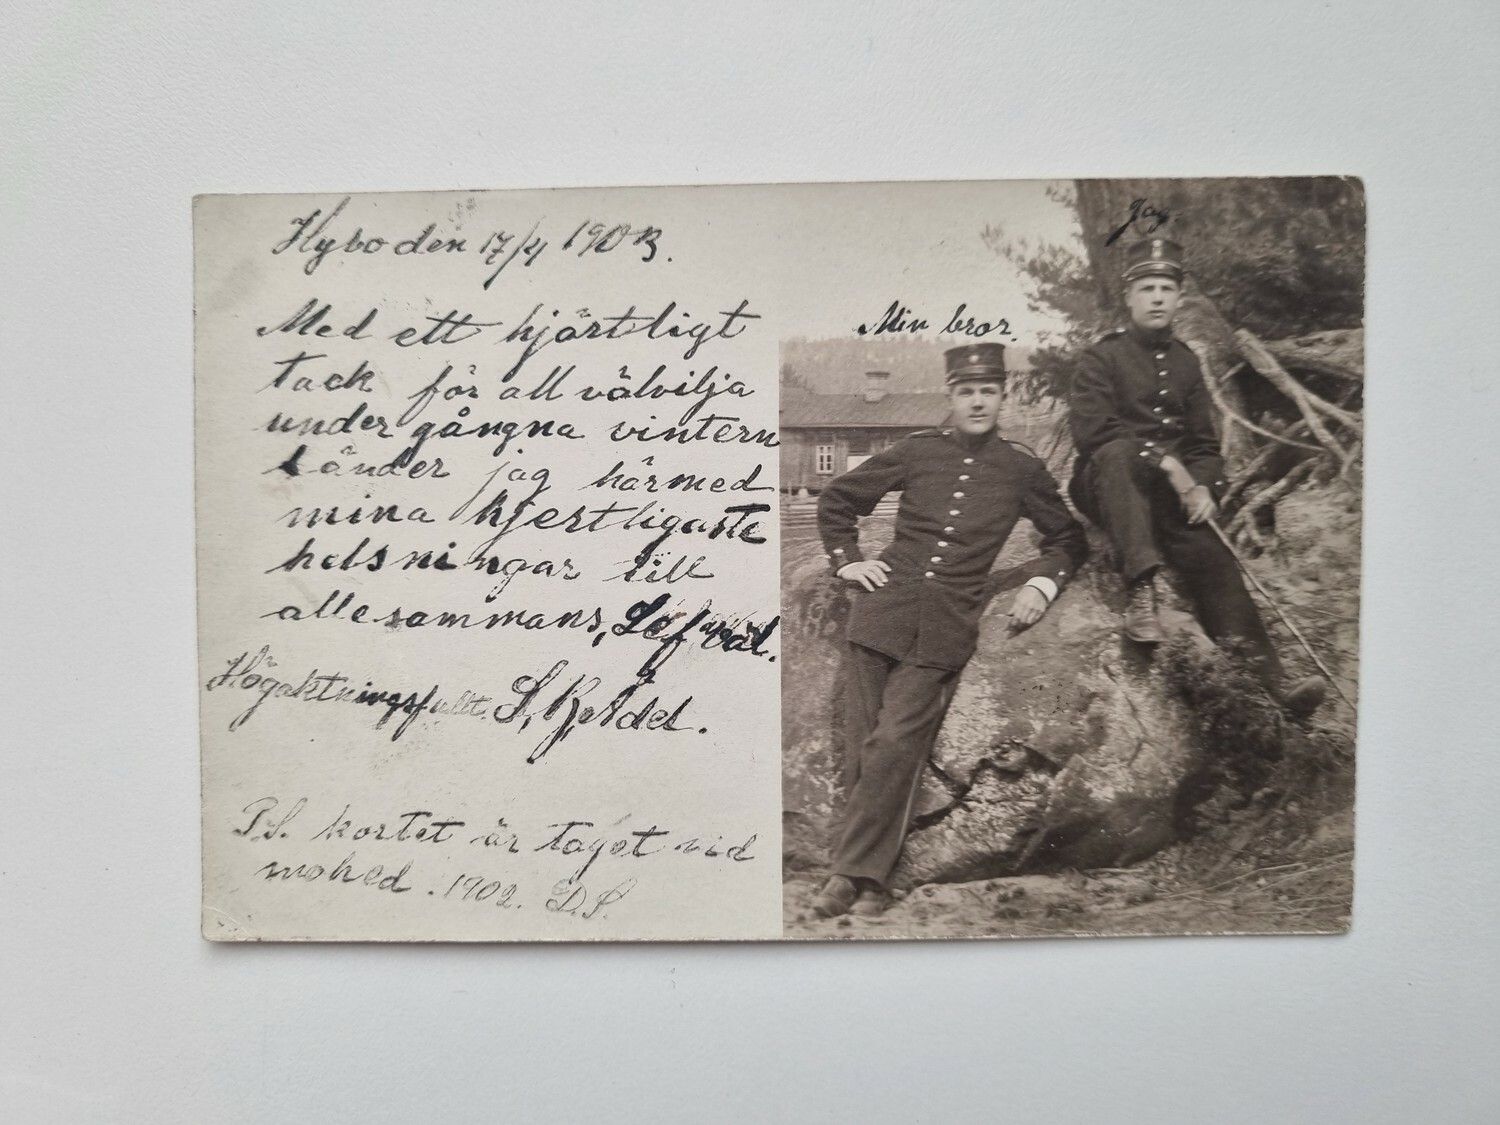 Hybo den 17/4 1903.
Med ett hjärtligt
tack för all välvilja
under gångna vintern
sänder jag härmed
mina hjertligaste
helsningar till
allesammans, Lef väl.
Högaktningsfullt.
P.S. kortet är taget vid
mohed. 1902. D.S.
Min bror.
Jag.